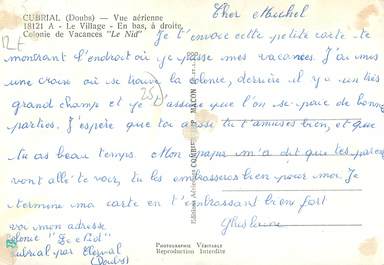 CUBRIAL (Doubs) — Vue aérienne
18121 A - Le Village - En bas, à droite,
Colonie de Vacances "Le Nid"
Cher Michel
Je t'envoie cette petite carte te
montrant l'endroit où je passe mes vacances. J'ai mis
une croix où se trouve la colonie, derrière il y a un très
grand champ et je t'assure que l'on se paie de bonnes
parties. J'espère que toi aussi tu t'amuses bien, et que
tu as beau temps. Mon papa m'a dit que tes parents
vont allé te voir, tu les embrasseras bien pour moi. Je
termine ma carte en t'embrassant bien fort
Ghislaine
voi mon adresse
colonie "Le Nid"
Cubrial par Clerval
(Doubs)
Editions Aériennes COMBIER MACON
PHOTOGRAPHIE VÉRITABLE
Reproduction Interdite